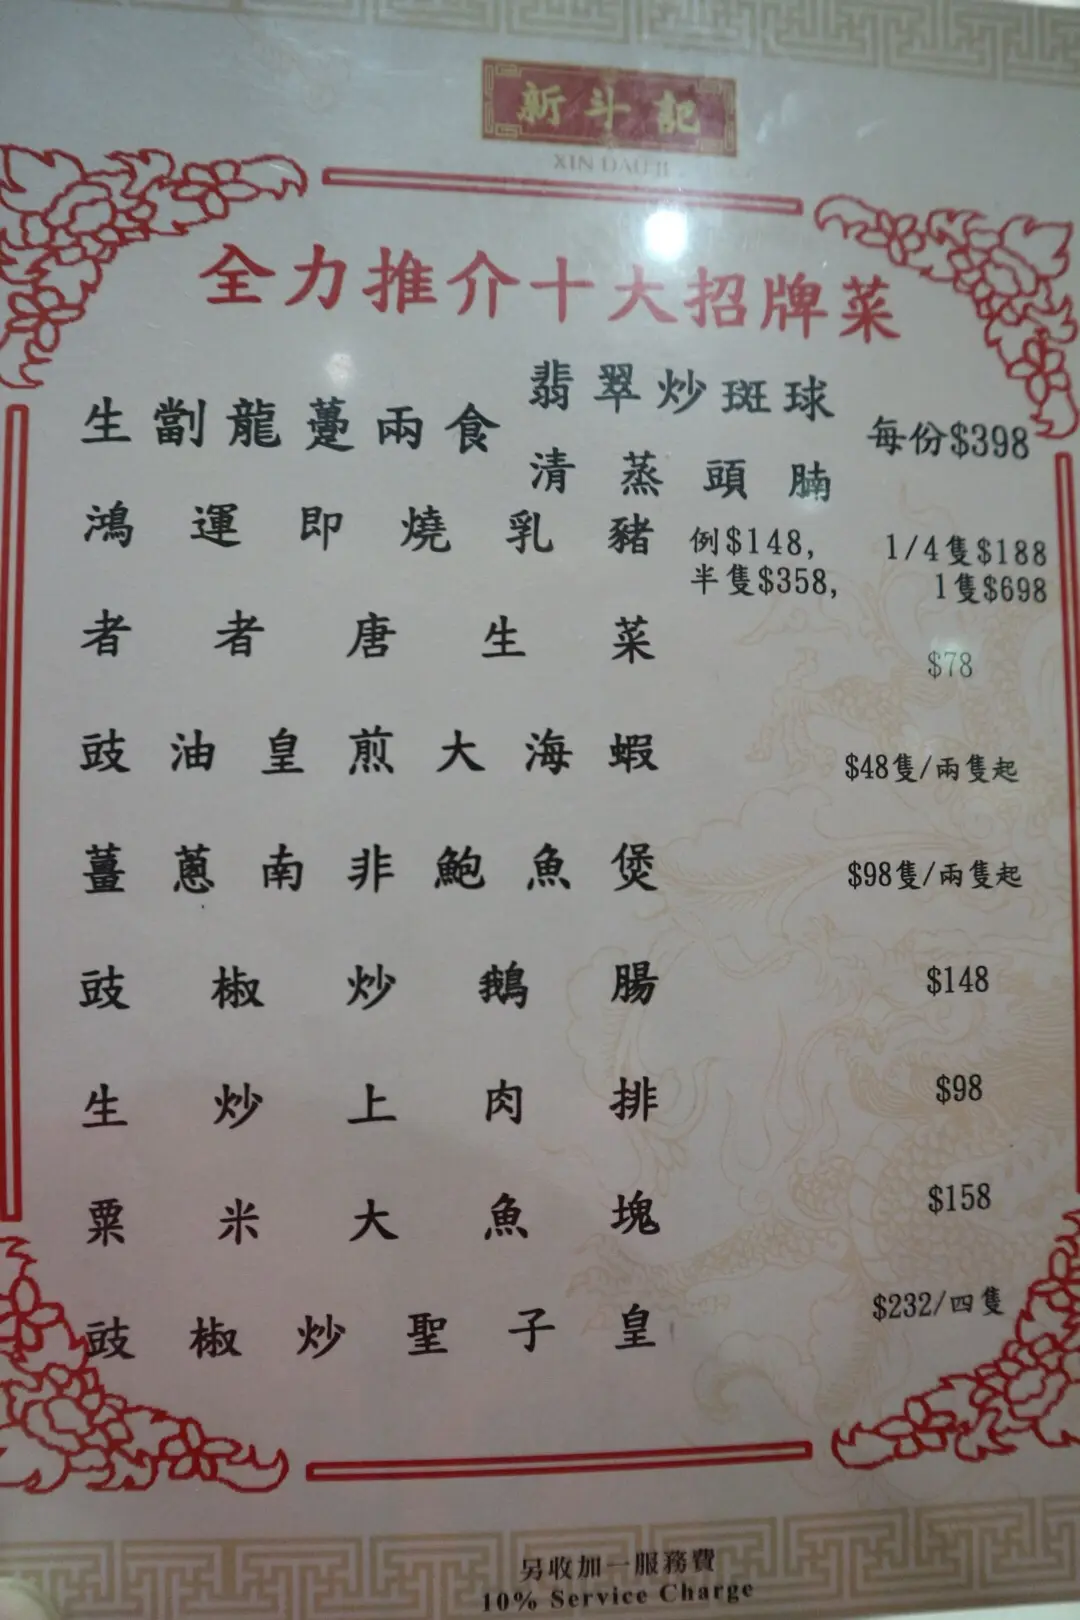 新斗記
XIN DAU JI
全力推介十大招牌菜
生劏龍躉兩食 翡翠炒斑球 每份$398
清蒸頭腩
鴻運即燒乳豬 例$148, 1/4隻$188
半隻$358, 1隻$698
者者唐生菜 $78
豉油皇煎大海蝦 $48隻/兩隻起
薑蔥南非鮑魚煲 $98隻/兩隻起
豉椒炒鵝腸 $148
生炒上肉排 $98
粟米大魚塊 $158
豉椒炒聖子皇 $232/四隻
另收加一服務費
10% Service Charge